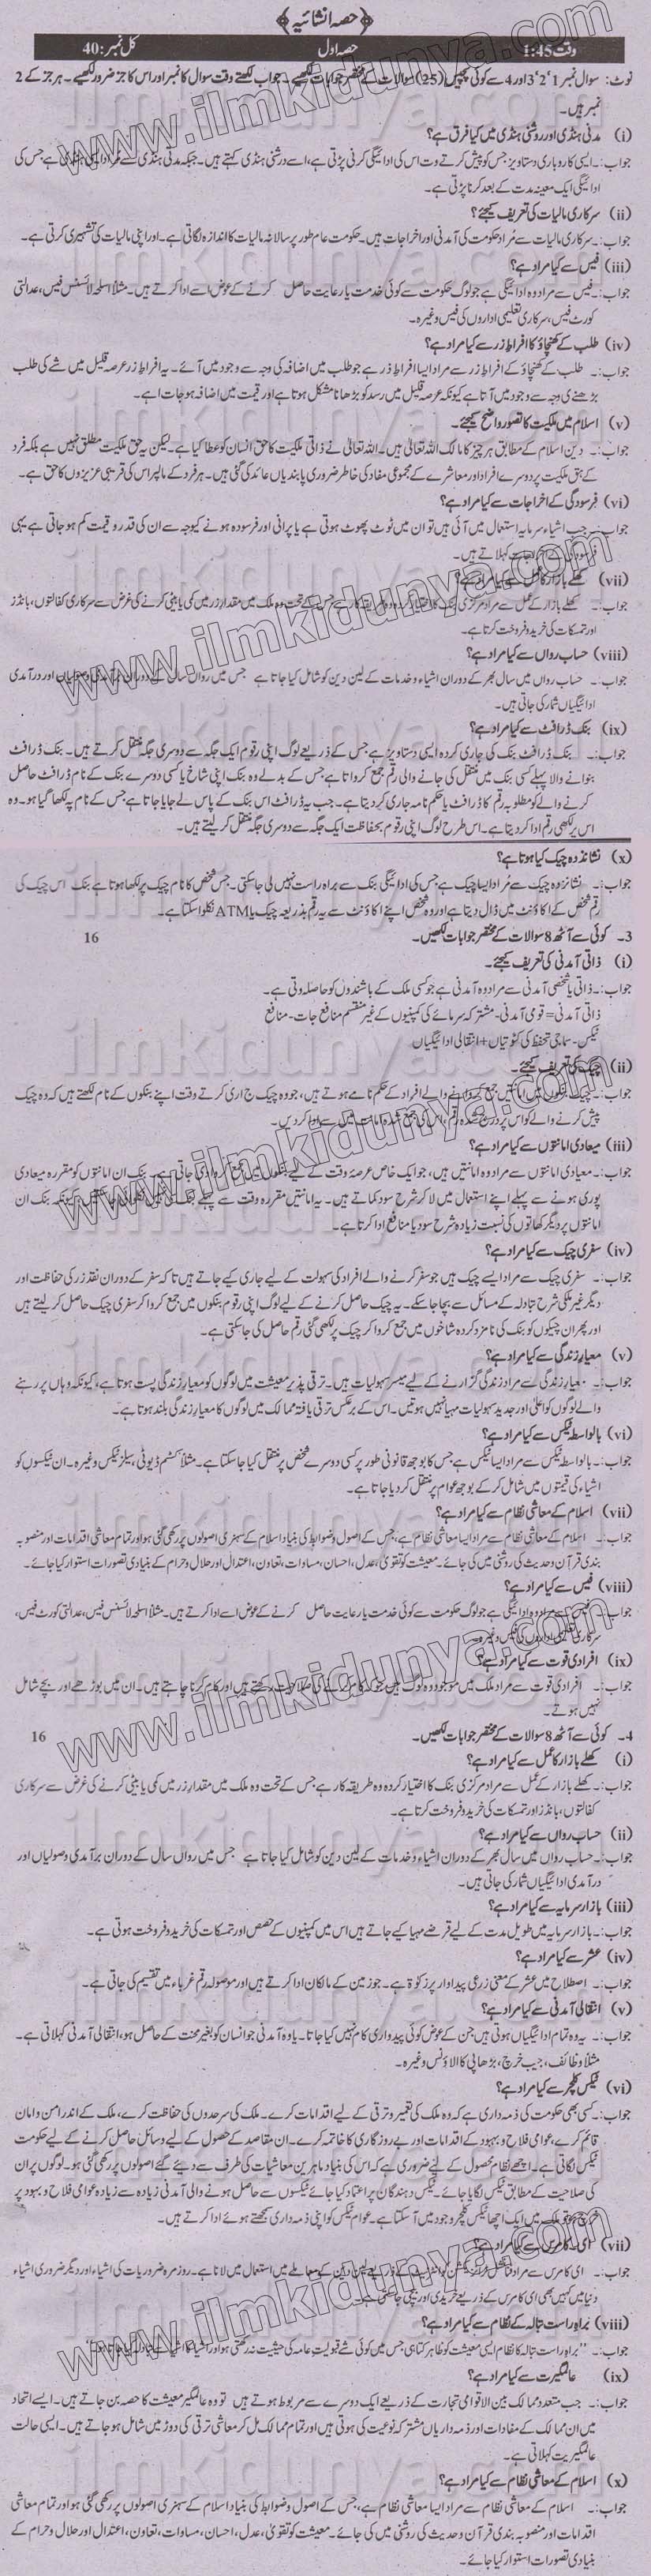 ﴿حصہ انشائیہ﴾
وقت 1:45 حصہ اول کل نمبر: 40
نوٹ: سوال نمبر 1'2'3 اور 4 سے کوئی پچیس (25) سوالات کے مختصر جوابات لکھیے۔ جواب لکھتے وقت سوال کا نمبر اور اس کا جز ضرور لکھیے۔ ہر جز کے 2
نمبر ہیں۔
(i) مدنی ہنڈی اور روشنی ہنڈی میں کیا فرق ہے؟
جواب:۔ ایسی کاروباری دستاویز جس کو پیش کرتے وقت اس کی ادائیگی کرنی پڑتی ہے، اسے درشنی ہنڈی کہتے ہیں۔ جبکہ مدنی ہنڈی سے مراد ایسی ہنڈی ہے جس کی
ادائیگی ایک معینہ مدت کے بعد کرنا پڑتی ہے۔
(ii) سرکاری مالیات کی تعریف کیجئے؟
جواب:۔ سرکاری مالیات سے مُراد حکومت کی آمدنی اور اخراجات ہیں۔ حکومت عام طور پر سالانہ مالیات کا اندازہ لگاتی ہے۔ اور اپنی مالیات کی تشہیری کرتی ہے۔
(iii) فیس سے کیا مراد ہے؟
جواب:۔ فیس سے مراد وہ ادائیگی ہے جو لوگ حکومت سے کوئی خدمت یا رعایت حاصل کرنے کے عوض اسے ادا کرتے ہیں۔ مثلاً اسلحہ لائسنس فیس، عدالتی
کورٹ فیس، سرکاری تعلیمی اداروں کی فیس وغیرہ۔
(iv) طلب کے کھنچاؤ کا افراطِ زر سے کیا مراد ہے؟
جواب:۔ طلب کے کھنچاؤ کے افراطِ زر سے مراد ایسا افراطِ زر ہے جو طلب میں اضافہ کی وجہ سے وجود میں آئے۔ یہ افراطِ زر عرصہ قلیل میں شے کی طلب
بڑھنے کی وجہ سے وجود میں آتا ہے کیونکہ عرصہ قلیل میں رسد کو بڑھانا مشکل ہوتا ہے اور قیمت میں اضافہ ہو جاتا ہے۔
(v) اسلام میں ملکیت کا تصور واضح کیجئے۔
جواب:۔ دین اسلام کے مطابق ہر چیز کا مالک اللہ تعالیٰ ہیں۔ اللہ تعالیٰ نے ذاتی ملکیت کا حق انسان کو عطا کیا ہے۔ لیکن یہ حق ملکیت مطلق نہیں ہے بلکہ فرد
کے حق ملکیت پر دوسرے افراد اور معاشرے کے مجموعی مفاد کی خاطر ضروری پابندیاں عائد کی گئی ہیں۔ ہر فرد کے مال پر اس کی قریبی عزیزوں کا حق ہے۔
(vi) فرسودگی کے اخراجات سے کیا مراد ہے؟
جواب:۔ جب اشیاء سرمایہ استعمال میں آئی ہیں تو ان میں ٹوٹ پھوٹ ہوتی ہے یا پرانی اور فرسودہ ہونے کیوجہ سے ان کی قدر و قیمت کم ہو جاتی ہے یہی
فرسودگی کے اخراجات کہلاتے ہیں۔
(vii) کھلے بازار کا عمل سے کیا مراد ہے؟
جواب:۔ کھلے بازار کے عمل سے مراد مرکزی بنک کا اختیار کردہ وہ طریقہ کار ہے جس کے تحت وہ ملک میں مقدار زر میں کمی یا بیشی کرنے کی غرض سے سرکاری کفالتوں، بانڈز
اور تمسکات کی خرید و فروخت کرتا ہے۔
(viii) حساب رواں سے کیا مراد ہے؟
جواب:۔ حساب رواں میں سال بھر کے دوران اشیاء و خدمات کے لین دین کو شامل کیا جاتا ہے جس میں رواں سال کے دوران برآمدی وصولیاں اور درآمدی
ادائیگیاں شمار کی جاتی ہیں۔
(ix) بنک ڈرافٹ سے کیا مراد ہے؟
جواب:۔ بنک ڈرافٹ بنک کی جاری کردہ ایسی دستاویز ہے جس کے ذریعے لوگ اپنی رقوم ایک جگہ سے دوسری جگہ منتقل کرتے ہیں۔ بنک ڈرافٹ
بنوانے والا پہلے کسی بنک میں منتقل کی جانے والی رقم جمع کرواتا ہے جس کے بدلے وہ بنک اپنی شاخ یا کسی دوسرے بنک کے نام ڈرافٹ حاصل
کرنے والے کو مطلوبہ رقم کا ڈرافٹ یا حکم نامہ جاری کر دیتا ہے۔ جب یہ ڈرافٹ اس بنک کے پاس لے جایا جاتا ہے جس کے نام پر لکھا گیا ہو۔ وہ
اس پر لکھی رقم ادا کر دیتا ہے۔ اس طرح لوگ اپنی رقوم بحفاظت ایک جگہ سے دوسری جگہ منتقل کر لیتے ہیں۔
(x) نشانزدہ چیک کیا ہوتا ہے؟
جواب:۔ نشانزدہ چیک سے مراد ایسا چیک ہے جس کی ادائیگی بنک سے براہ راست نہیں لی جا سکتی۔ جس شخص کا نام چیک پر لکھا ہوتا ہے بنک اس چیک کی
رقم شخص کے اکاؤنٹ میں ڈال دیتا ہے اور وہ شخص اپنے اکاؤنٹ سے یہ رقم بذریعہ چیک یا ATM نکلوا سکتا ہے۔
3۔ کوئی سے آٹھ 8 سوالات کے مختصر جوابات لکھیں۔ 16
(i) ذاتی آمدنی کی تعریف کیجئے۔
جواب:۔ ذاتی یا شخصی آمدنی سے مراد وہ آمدنی ہے جو کسی ملک کے باشندوں کو حاصل ہوتی ہے۔
ذاتی آمدنی = قومی آمدنی - مشترکہ سرمائے کی کمپنیوں کے غیر منقسم منافع جات - منافع
ٹیکس - سماجی تحفظ کی کٹوتیاں + انتقالی ادائیگیاں
(ii) چیک کی تعریف کیجئے۔
جواب:۔ چیک بنکوں میں امانتیں جمع کروانے والے افراد کے حکم نامے ہوتے ہیں، جو وہ چیک جاری کرتے وقت اپنے بنکوں کے نام لکھتے ہیں کہ وہ چیک
پیش کرنے والے کو اس پر درج شدہ رقم، اس کی جمع شدہ امانت میں سے ادا کر دیں۔
(iii) میعادی امانتوں سے کیا مراد ہے؟
جواب:۔ معیادی امانتوں سے مراد وہ امانتیں ہیں، جو ایک خاص عرصۂ وقت کے لیے بنکوں میں جمع کروا دی جاتی ہے۔ بنک ان امانتوں کو مقررہ میعادی
پوری ہونے سے پہلے اپنے استعمال میں لا کر شرح سود کماتے ہیں۔ یہ امانتیں مقررہ وقت سے پہلے بنک بنک ان
امانتوں پر دیگر کھاتوں کی نسبت زیادہ شرح سود یا منافع ادا کرتا ہے۔
(iv) سفری چیک سے کیا مراد ہے؟
جواب:۔ سفری چیک سے مراد ایسے چیک ہیں جو سفر کرنے والے افراد کی سہولت کے لیے جاری کیے جاتے ہیں تاکہ سفر کے دوران نقد زر کی حفاظت اور
دیگر غیر ملکی شرح تبادلہ کے مسائل سے بچا جا سکے۔ یہ چیک حاصل کرنے کے لیے لوگ اپنی رقوم بنکوں میں جمع کروا کر سفری چیک حاصل کر لیتے ہیں
اور پھر ان چیکوں کو بنک کی نامزد کردہ شاخوں میں جمع کروا کر چیک پر لکھی گئی رقم حاصل کی جا سکتی ہے۔
(v) معیارِ زندگی سے کیا مراد ہے؟
جواب:۔ معیارِ زندگی سے مراد زندگی گزارنے کے لیے میسر سہولیات ہیں۔ ترقی پذیر معیشت میں لوگوں کو معیارِ زندگی پست ہوتا ہے، کیونکہ وہاں پر رہنے
والے لوگوں کو اعلیٰ اور جدید سہولیات مہیا نہیں ہوتیں۔ اس کے برعکس ترقی یافتہ ممالک میں لوگوں کا معیارِ زندگی بلند ہوتا ہے۔
(vi) بالواسطہ ٹیکس سے کیا مراد ہے؟
جواب:۔ بالواسطہ ٹیکس سے مراد ایسا ٹیکس ہے جس کا بوجھ قانونی طور پر کسی دوسرے شخص پر منتقل کیا جا سکتا ہے۔ مثلاً کسٹم ڈیوٹی، سیلز ٹیکس وغیرہ۔ ان ٹیکسوں کو
اشیاء کی قیمتوں میں شامل کر کے بوجھ عوام پر منتقل کر دیا جاتا ہے۔
(vii) اسلام کے معاشی نظام سے کیا مراد ہے؟
جواب:۔ اسلام کے معاشی نظام سے مراد ایسا معاشی نظام ہے، جس کے اصول و ضوابط کی بنیاد اسلام کے سنہری اصولوں پر رکھی گئی ہو اور تمام معاشی اقدامات اور منصوبہ
بندی قرآن و حدیث کی روشنی میں کی جائے۔ معیشت کو تقویٰ، عدل، احسان، مساوات، تعاون، اعتدال اور حلال و حرام کے بنیادی تصورات استوار کیا جائے۔
(viii) فیس سے کیا مراد ہے؟
جواب:۔ فیس سے مراد وہ ادائیگی ہے جو لوگ حکومت سے کوئی خدمت یا رعایت حاصل کرنے کے عوض اسے ادا کرتے ہیں۔ مثلاً اسلحہ لائسنس فیس، عدالتی کورٹ فیس،
سرکاری تعلیمی اداروں کی فیس وغیرہ۔
(ix) افرادی قوت سے کیا مراد ہے؟
جواب:۔ افرادی قوت سے مراد ملک میں موجود وہ لوگ ہیں جو کہ کام کرنے کی صلاحیت رکھتے ہیں اور کام کرنا چاہتے ہیں۔ ان میں بوڑھے اور بچے شامل
نہیں ہوتے۔
4۔ کوئی سے آٹھ 8 سوالات کے مختصر جوابات لکھیں۔ 16
(i) کھلے بازار کا عمل سے کیا مراد ہے؟
جواب:۔ کھلے بازار کے عمل سے مراد مرکزی بنک کا اختیار کردہ وہ طریقہ کار ہے جس کے تحت وہ ملک میں مقدار زر میں کمی یا بیشی کرنے کی غرض سے سرکاری
کفالتوں، بانڈز اور تمسکات کی خرید و فروخت کرتا ہے۔
(ii) حساب رواں سے کیا مراد ہے؟
جواب:۔ حساب رواں میں سال بھر کے دوران اشیاء و خدمات کے لین دین کو شامل کیا جاتا ہے جس میں رواں سال کے دوران برآمدی وصولیاں اور
درآمدی ادائیگیاں شمار کی جاتی ہیں۔
(iii) بازارِ سرمایہ سے کیا مراد ہے؟
جواب:۔ بازار سرمایہ میں طویل مدت کے لیے قرضے مہیا کیے جاتے ہیں اس میں کمپنیوں کے حصص اور تمسکات کی خرید و فروخت ہوتی ہے۔
(iv) عشر سے کیا مراد ہے؟
جواب:۔ اصطلاح میں عشر کے معنی زرعی پیداوار پر زکوٰۃ ہے۔ جو زمین کے مالکان ادا کرتے ہیں اور موصولہ رقم غرباء میں تقسیم کی جاتی ہے۔
(v) انتقالی آمدنی سے کیا مراد ہے؟
جواب:۔ یہ وہ تمام ادائیگیاں ہوتی ہیں جن کے عوض کوئی پیدواری کام نہیں کیا جاتا۔ یا وہ آمدنی جو انسان کو بغیر محنت کے حاصل ہو، انتقالی آمدنی کہلاتی ہے۔
مثلاً وظائف، جیب خرچ، بڑھاپی کا الاؤنس وغیرہ۔
(vi) ٹیکس کلچر سے کیا مراد ہے؟
جواب:۔ کسی بھی حکومت کی ذمہ داری ہے کہ وہ ملک کی تعمیر و ترقی کے لیے اقدامات کرے۔ ملک کی سرحدوں کی حفاظت کرے، ملک کے اندر امن و امان
قائم کرے، عوامی فلاح و بہبود کے اقدامات اور بے روزگاری کا خاتمہ کرے۔ ان مقاصد کے حصول کے لیے وسائل حاصل کرنے کے لیے حکومت
ٹیکس لگاتی ہے۔ اچھے نظام محصول کے لیے ضروری ہے کہ اس کی بنیاد ماہرین معاشیات کی طرف سے دیئے گئے اصولوں پر رکھی گئی ہو۔ لوگوں پر ان
کی صلاحیت کے مطابق ٹیکس لگایا جائے۔ ٹیکس دہندگان پر اعتماد کیا جائے ٹیکسوں سے حاصل ہونے والی آمدنی زیادہ سے زیادہ عوامی فلاح و بہبود پر
خرچ ہو تو ملک میں ایک اچھا ٹیکس کلچر وجود میں آ سکتا ہے۔ عوام ٹیکس کو اپنی ذمہ داری سمجھتے ہوئے ادا کرتے ہیں۔
(vii) ای۔ کامرس سے کیا مراد ہے؟
جواب:۔ ای کامرس سے مراد انٹرنیٹ کے ذریعے لین دین کے معاملے میں استعمال میں لانا ہے۔ روزمرہ ضروریات کی اشیاء اور دیگر ضروری اشیاء
دنیا میں کہیں بھی ای کامرس کے ذریعے خریدی اور بیچی جا سکتی ہے۔
(viii) براہ راست تبالہ کے نظام سے کیا مراد ہے؟
جواب:۔ ''براہ راست تبالہ کا نظام ایسی معیشت کو ظاہر کرتا ہے جس میں کوئی شے قبولیتِ عامہ کی حیثیت نہ رکھتی ہو اور اشیاء کا اشیاء سے تبادلہ کیا جاتا ہو۔''
(ix) عالمگیریت سے کیا مراد ہے؟
جواب:۔ جب متعدد ممالک بین الاقوامی تجارت کے ذریعے ایک دوسرے سے مربوط ہوتے ہیں تو وہ عالمگیر معیشت کا حصہ بن جاتے ہیں۔ ایسے اتحاد
میں ان ممالک کے مفادات اور ذمہ داریاں مشترکہ نوعیت کی ہوتی ہیں اور تمام ممالک مل کر معاشی ترقی کی دوڑ میں شامل ہو جاتے ہیں۔ ایسی حالت
عالمگیریت کہلاتی ہے۔
(x) اسلام کے معاشی نظام سے کیا مراد ہے؟
جواب:۔ اسلام کے معاشی نظام سے مراد ایسا معاشی نظام ہے، جس کے اصول و ضوابط کی بنیاد اسلام کے سنہری اصولوں پر رکھی گئی ہو اور تمام معاشی
اقدامات اور منصوبہ بندی قرآن و حدیث کی روشنی میں کی جائے۔ معیشت کو تقویٰ، عدل، احسان، مساوات، تعاون، اعتدال اور حلال و حرام کے
بنیادی تصورات استوار کیا جائے۔
www.ilmkidunya.com